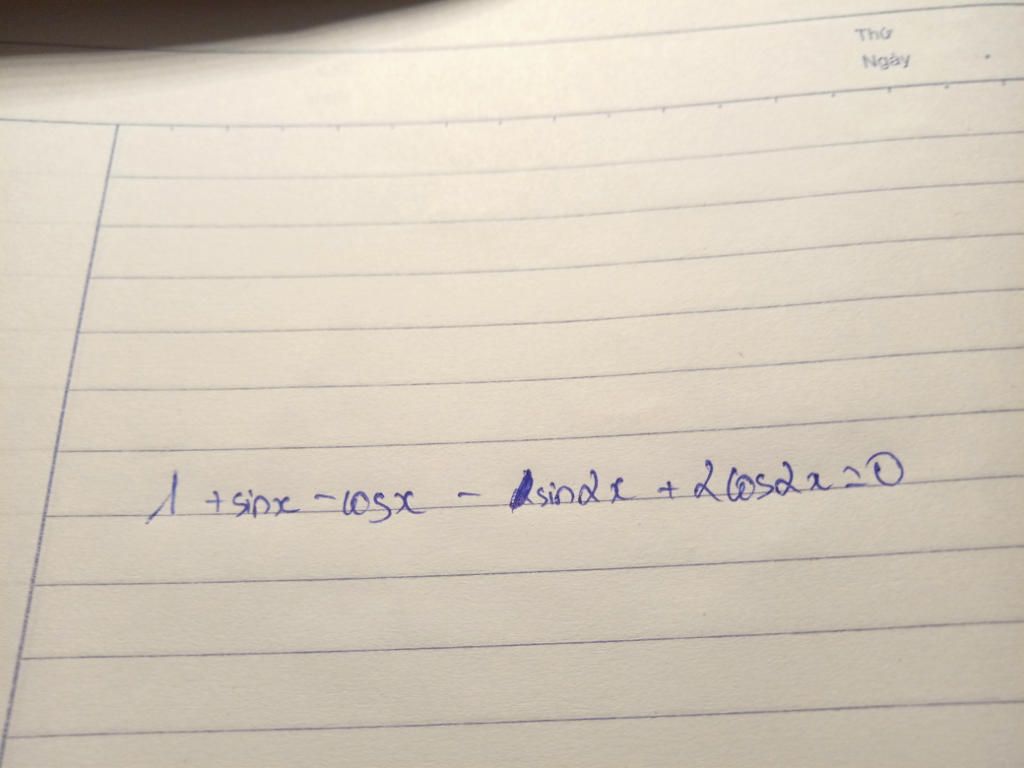 Thứ
Ngày
1 + sinx - cosx - sin2x + 2cos2x = 0